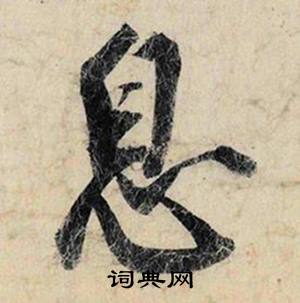 息
词典网